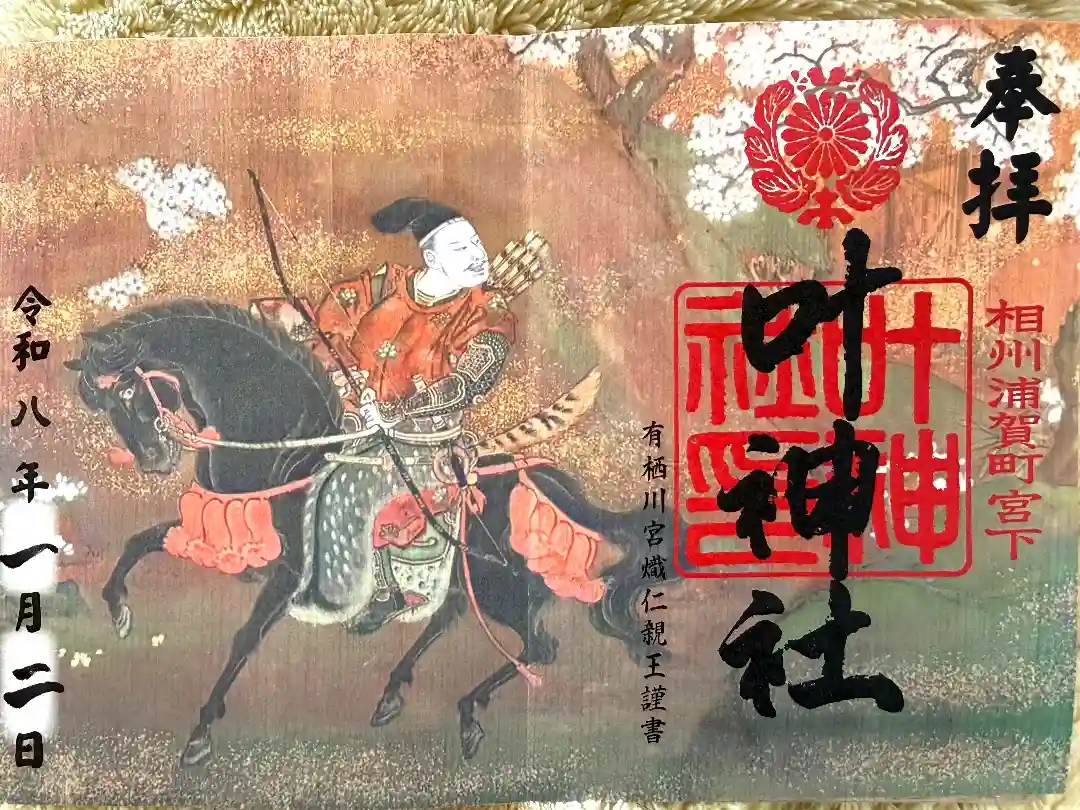 奉拝
相州浦賀町宮下
叶神社
叶神社印
有栖川宮熾仁親王謹書
令和八年一月二日